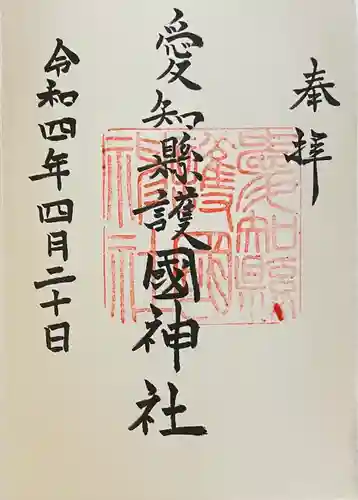 奉拝
愛知縣護國神社
令和四年四月二十日
愛知縣
護國
神社